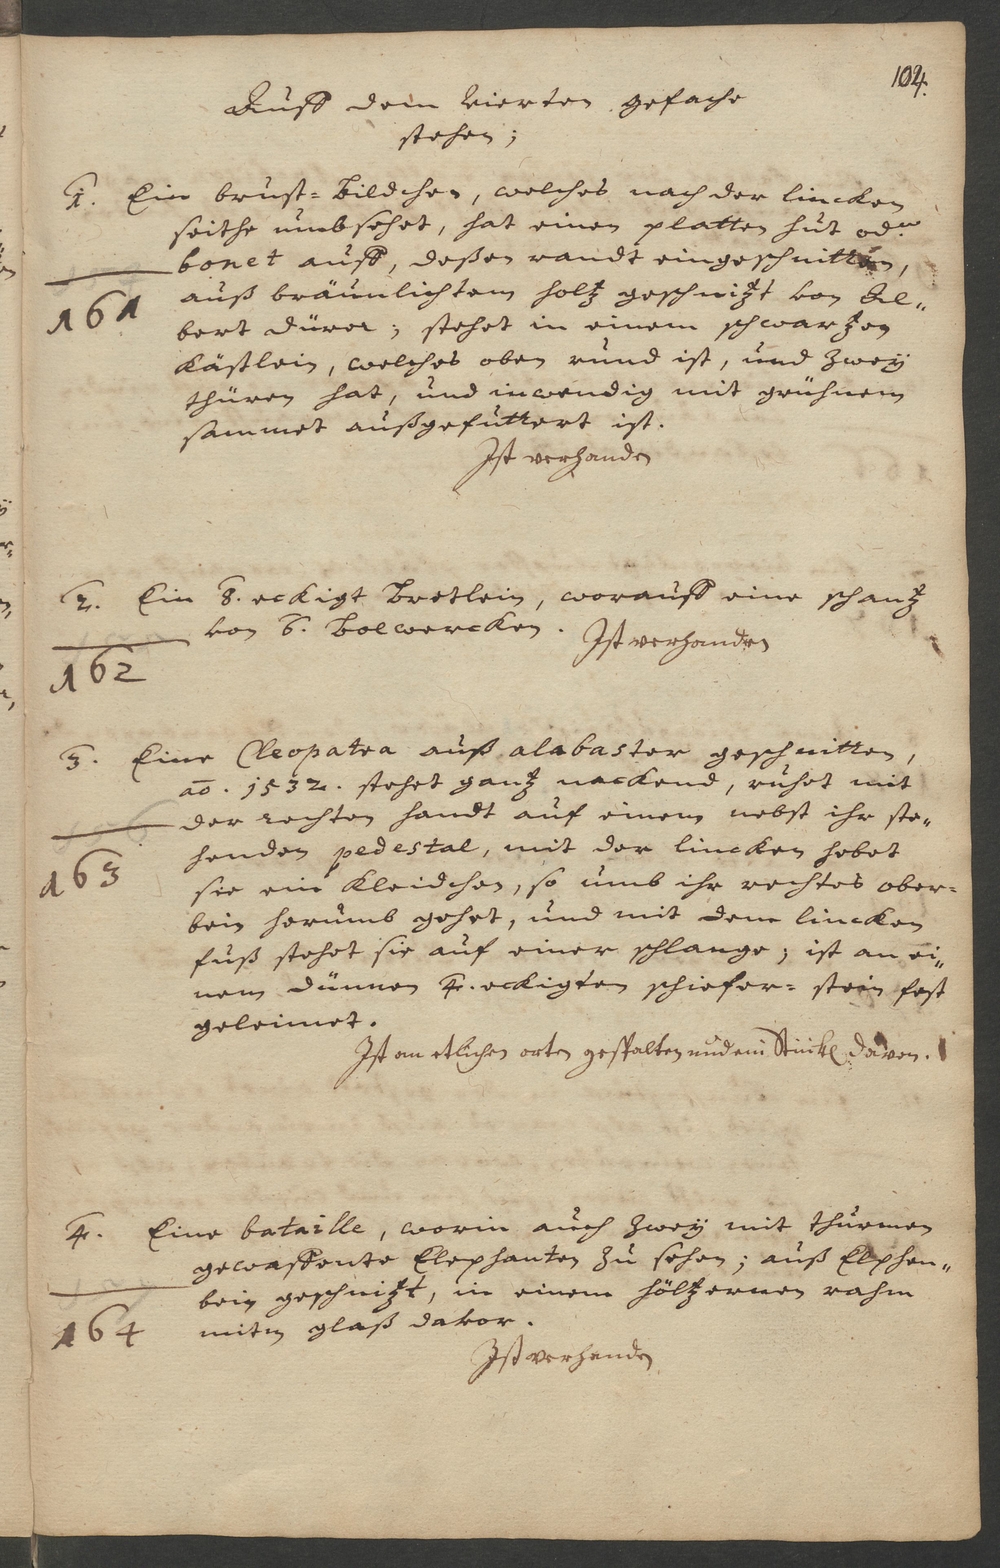 104.
Auff dem vierten gefache
stehen;
1. Ein brust=Bildchen, welches nach der lincken
seithe umbsehet, hat einen platten hut od.
bonet auff, deßen randt eingeschnitten,
161
auß bräunlichtem holtz geschnitzt von Al„
bert Dürer; stehet in einem schwartzen
Kästlein, welches oben rund ist, und zwey
thüren hat, und inwendig mit grühnem
sammet außgefuttert ist.
Ist verhanden
2. Ein 8. eckigt Bretlein, worauff eine schantz
von 6. Bolwercken. Ist verhanden
162
3. Eine Cleopatra auß alabaster geschnitten,
ao. 1532. stehet gantz nackend, ruhet mit
der rechten handt auf einem nebst ihr ste„
163
henden pedestal, mit der lincken hebet
sie ein Kleidchen, so umb ihr rechtes ober=
bein herumb gehet, und mit dem lincken
fuß stehet sie auf einer schlange; ist an ei„
nem dünnen 4. eckigten schiefer= stein fest
geleimet.
Ist an etlichen orten gespalten und ein Stück davon.
4. Eine bataille, worin auch zwey mit thürmen
gewaffente Elephanten zu sehen; auß Elphen„
bein geschnitzt, in einem höltzernen rahm
164
mitm glaß davor.
Ist verhanden